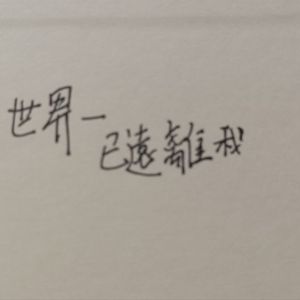 世界一
已遠離我